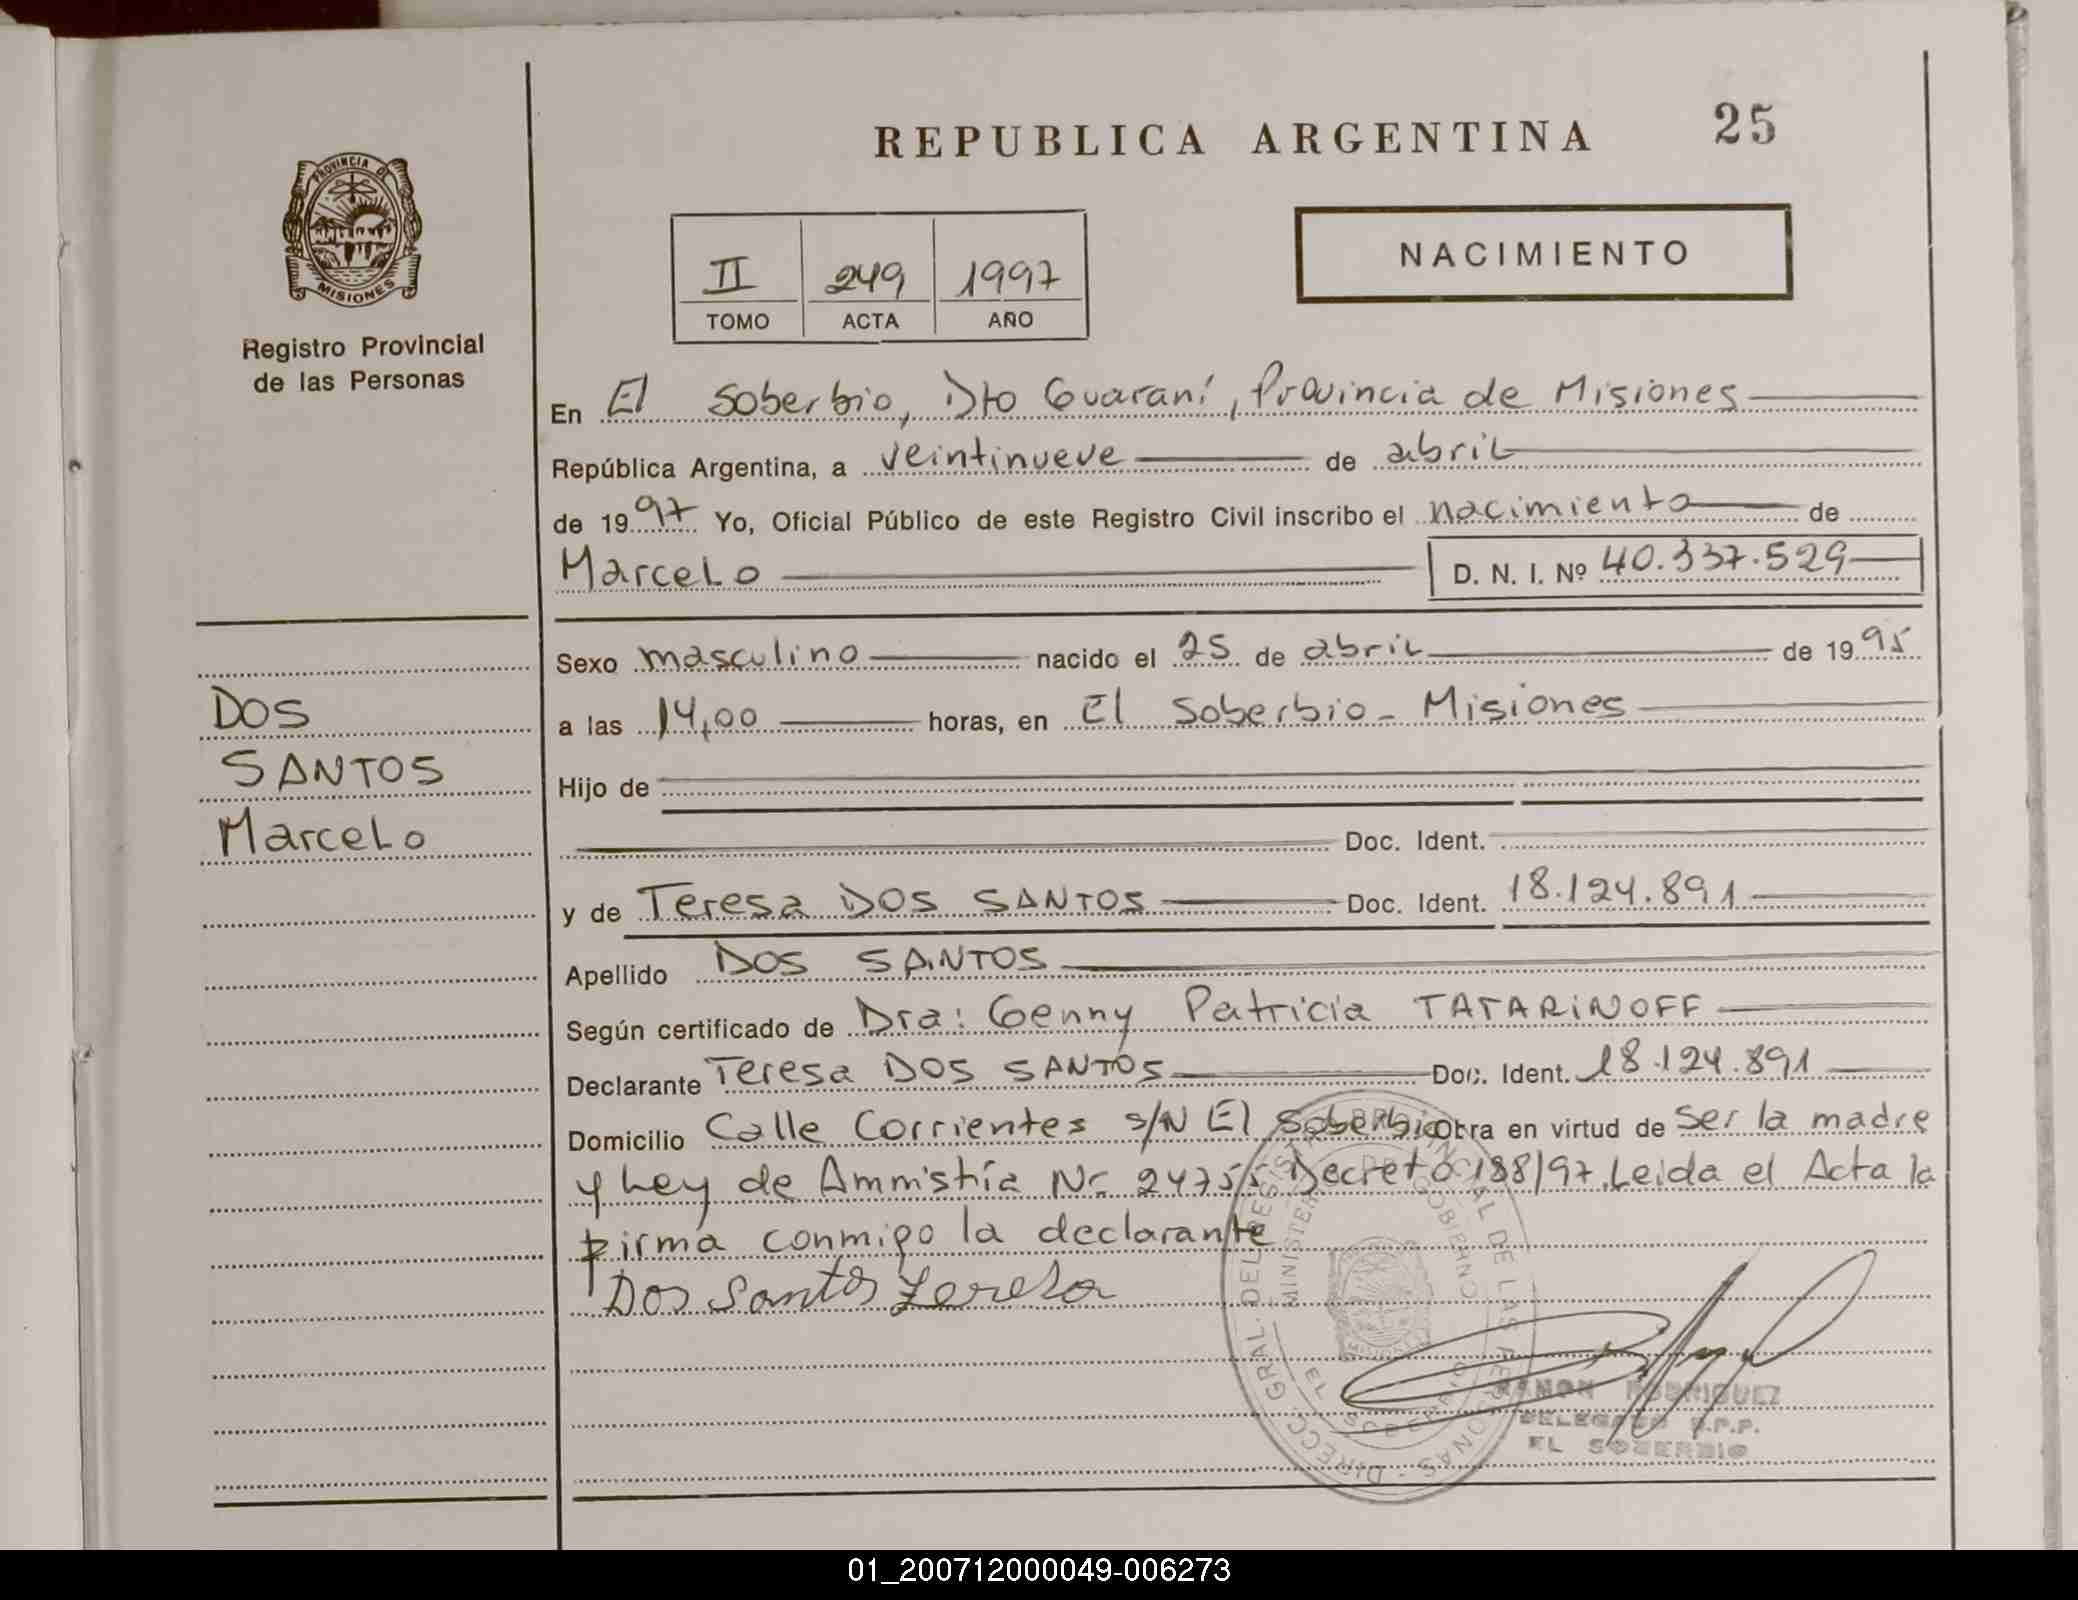 REPUBLICA ARGENTINA 25
PROVINCIA DE
MISIONES
Registro Provincial
de las Personas
NACIMIENTO
II 249 1997
TOMO ACTA AÑO
En El Soberbio, Dto Guaraní, Provincia de Misiones
República Argentina, a veintinueve de abril
de 1997 Yo, Oficial Público de este Registro Civil inscribo el nacimiento de
Marcelo D. N. I. Nº 40.337.529
Sexo masculino nacido el 25 de abril de 1995
DOS
SANTOS
Marcelo
a las 14,00 horas, en El Soberbio - Misiones
Hijo de
Doc. Ident.
y de Teresa DOS SANTOS Doc. Ident. 18.124.891
Apellido DOS SANTOS
Según certificado de Dra: Genny Patricia TATARINOFF
Declarante Teresa DOS SANTOS Doc. Ident. 18.124.891
Domicilio Calle Corrientes S/N El Soberbio obra en virtud de ser la madre
y Ley de Amnistía Nr 24755 Decreto 188/97. Leida el Acta la
firma conmigo la declarante
Dos Santos Teresa
DIRECC. GRAL. DEL REGISTRO PROVINCIAL DE LAS PERSONAS
MINISTERIO DE GOBIERNO
EL SOBERBIO
RAMON RODRIGUEZ
DELEGADO R.P.P.
EL SOBERBIO
01_200712000049-006273